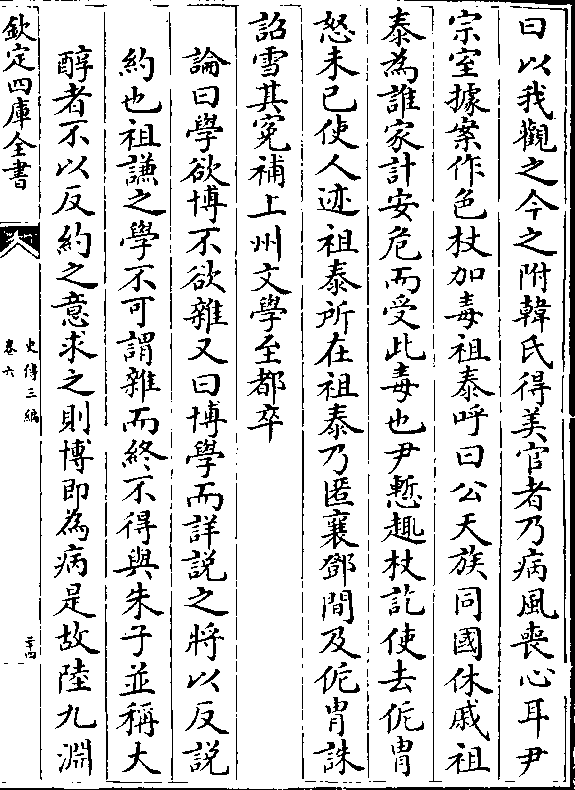 曰以我觀之今之附韓氏得美官者乃病風喪心耳尹
宗室據案作色杖加毒祖泰呼曰公天族同國休戚祖
泰為誰家計安危而受此毒也尹慙趣杖訖使去侂胄
怒未已使人迹祖泰所在祖泰乃匿襄鄧間及侂胄誅
詔雪其冤補上州文學至都卒
論曰學欲博不欲雜又曰博學而詳説之將以反説
約也祖謙之學不可謂雜而終不得與朱子並稱大
醇者不以反約之意求之則博即為病是故陸九淵
欽定四庫全書
史傳三編
卷六
二十四